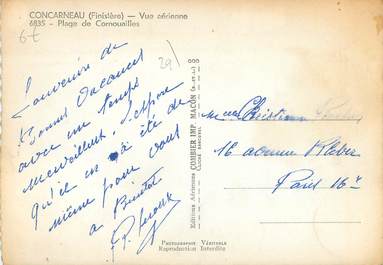 CONCARNEAU (Finistère) — Vue aérienne
6835 - Plage de Cornouailles
6€
29
Souvenirs de
Bonnes Vacances
avec un temps
merveilleux. J'espère
qu'il en a été de
même pour vous
a Bientôt
Editions Aériennes COMBIER IMP. MACON (S.-et-L.)
CLICHÉ RANCUREL
Christiane
16 avenue Kléber
Paris 16e
PHOTOGRAPHIE VÉRITABLE
Reproduction Interdite